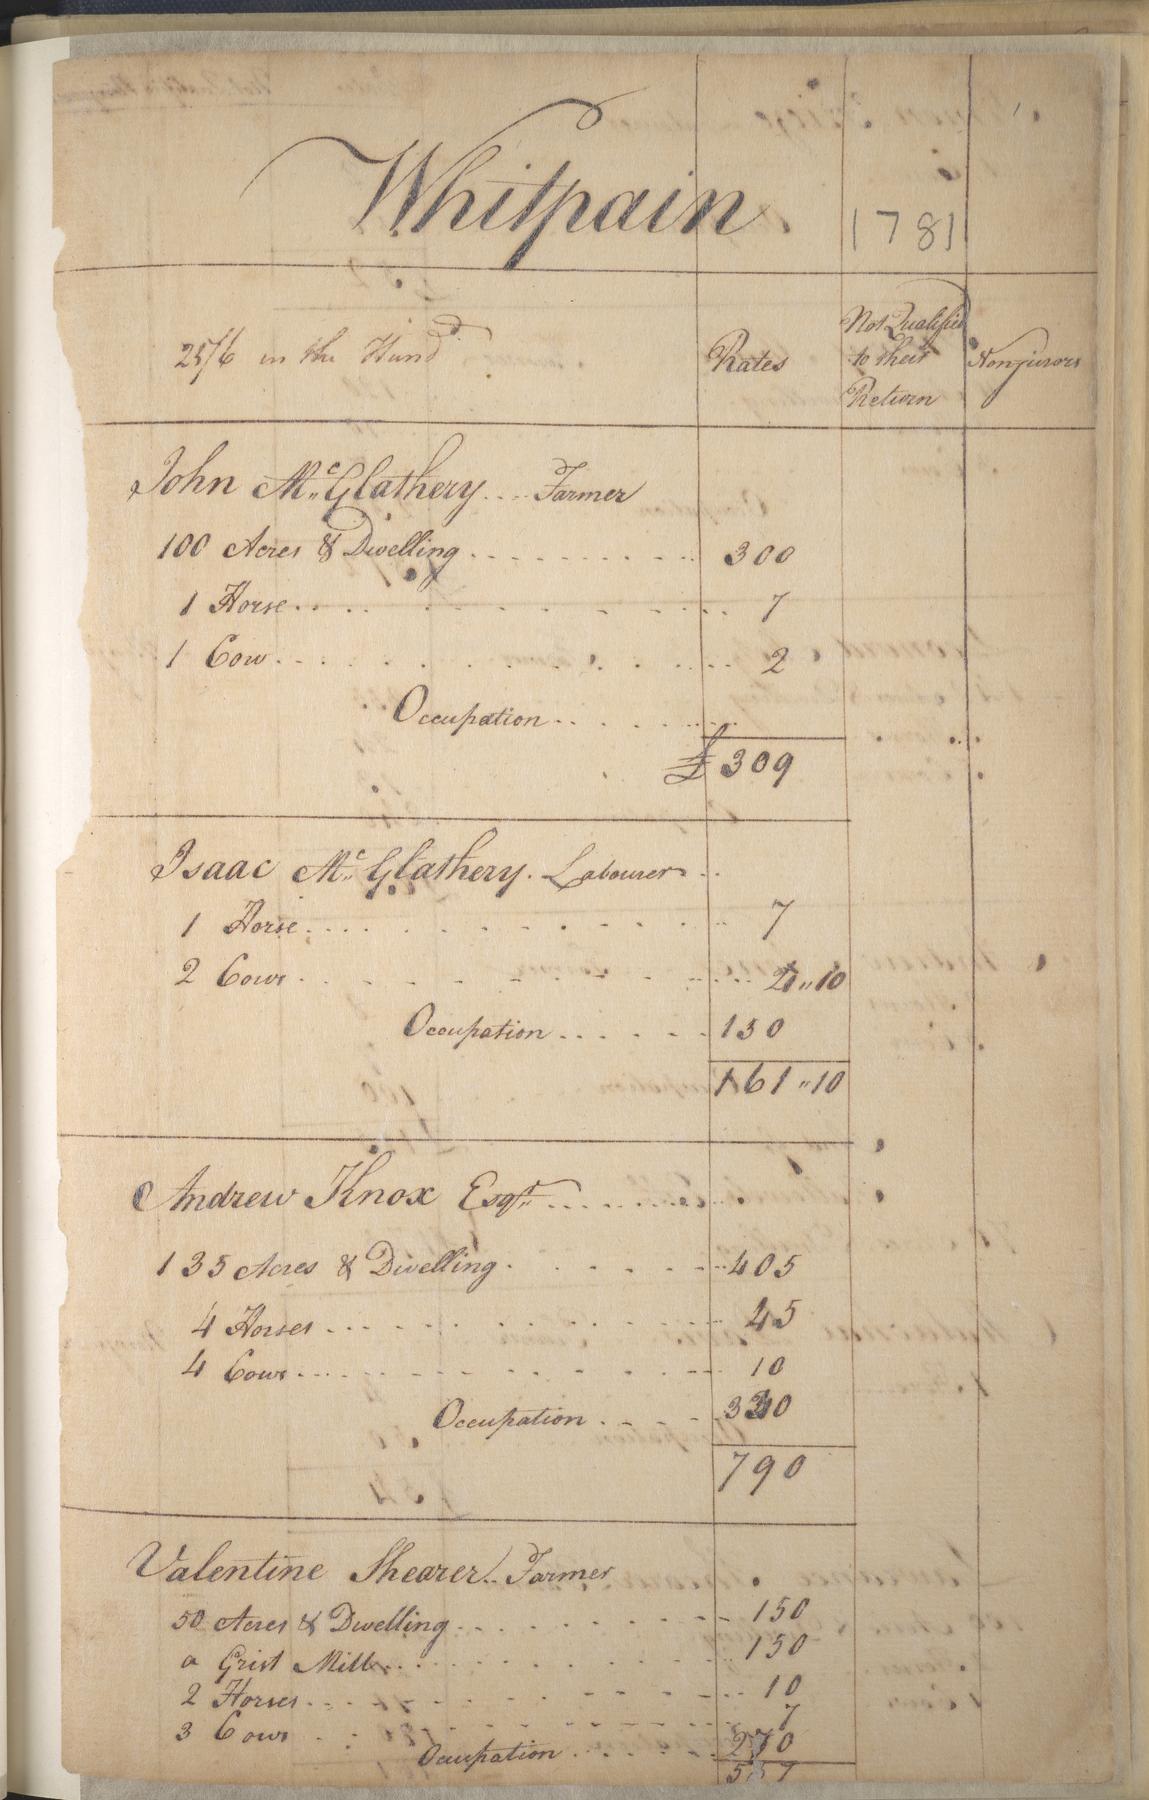 Whitpain
1781
25/6 in the Hund^d
Rates
Not Qualified
to their
Return
Nonjurors
John M^c Glathery .... Farmer
100 Acres & Dwelling ......... 300
1 Horse .......... 7
1 Cow .......... 2
Occupation ........
£ 309
Isaac M^c Glathery. Labourer ..
1 Horse .......... 7
2 Cows .......... 4"10
Occupation ...... 150
161"10
Andrew Knox Esq^r ........
135 Acres & Dwelling ....... 405
4 Horses .......... 45
4 Cows .......... 10
Occupation ..... 330
790
Valentine Shearer .. Farmer
50 Acres & Dwelling ....... 150
a Grist Mill .......... 150
2 Horses .......... 10
3 Cows .......... 7
Ocupation ......